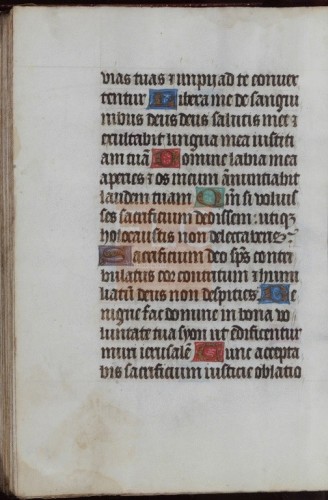 vias tuas ⁊ impij ad te conuer
tentur Libera me de sangui
nibus deus deus salutis mee ⁊
exultabit lingua mea iustici
am tuā Domine labia mea
aperies ⁊ os meum ānunciabit
laudem tuam Qm̄ si voluis
ses sacrificium dedissem: utiqꝫ
holocaustis non delectaberis:
Sacrificium deo sp̄s contri
bulatus cor contritum ⁊ humi
liatū deus non despicies Be
nigne fac domine in bona vo
luntate tua syon ut edificentur
muri ierusalē Tunc accepta
bis sacrificium iusticie oblatio